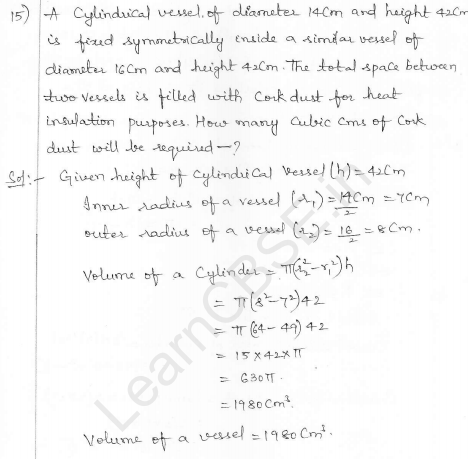 15) A Cylindrical vessel. of diameter 14Cm and height 42Cm
is fixed symmetrically inside a similar vessel of
diameter 16Cm and height 42Cm. The total space between
two vessels is filled with Cork dust for heat
insulation purposes. How many Cubic Cms of Cork
dust will be required —?
Sol:- Given height of Cylindrical vessel (h) = 42Cm
Inner radius of a vessel (r₁) = 14Cm/2 = 7Cm
outer radius of a vessel (r₂) = 16/2 = 8Cm.
Volume of a Cylinder = π(r₂² - r₁²)h
= π(8² - 7²)42
= π(64 - 49)42
= 15 × 42 × π
= 630π.
= 1980Cm³.
Volume of a vessel = 1980Cm³.
LearnCBSE.in